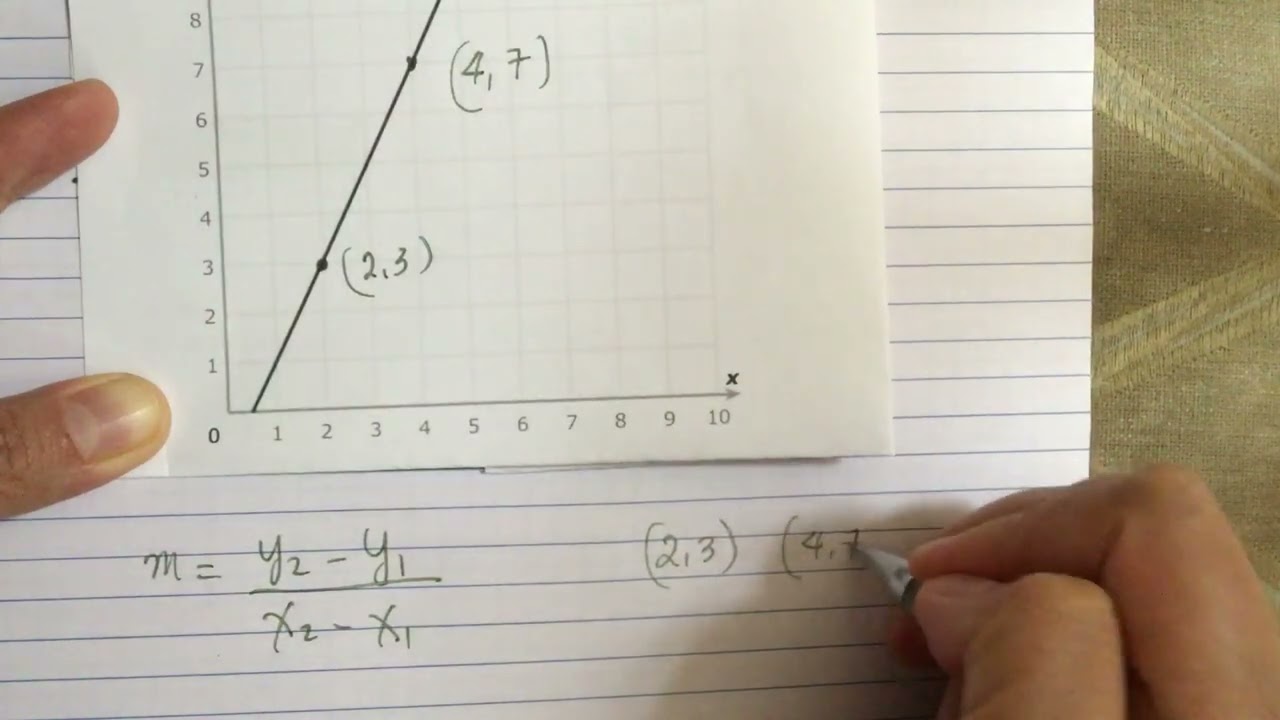 8
7
(4,7)
6
5
4
3
(2,3)
2
1
x
0 1 2 3 4 5 6 7 8 9 10
m = y₂ - y₁ (2,3) (4,7
x₂ - x₁